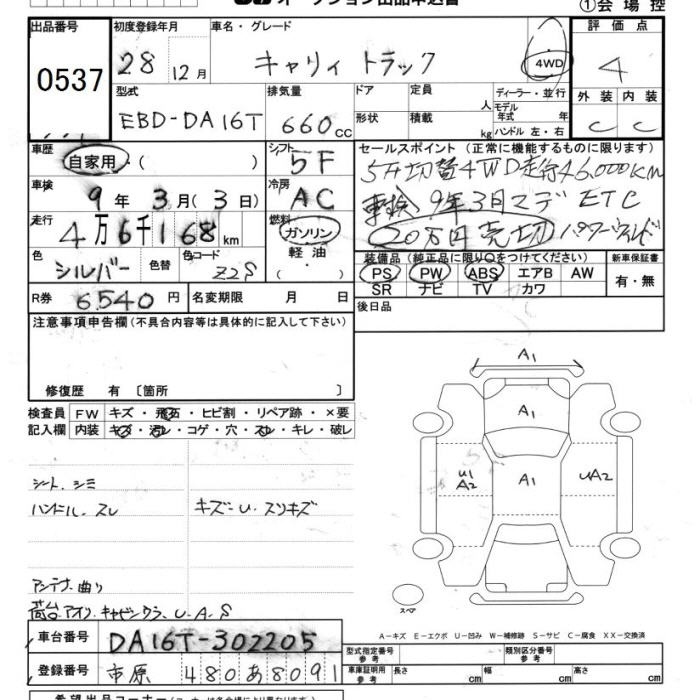 オークション出品申込書
①会場控
出品番号 初度登録年月 車名・グレード 評価点
0537 28 12月 キャリィ トラック 4WD 4
型式 排気量 ドア 定員 人 ディーラー・並行 外装 内装
EBD-DA16T 660cc 形状 積載 kg モデル年式 年 ハンドル 左・右 C C
車歴 シフト セールスポイント(正常に機能するものに限ります)
自家用・( ) 5F 5F切替4WD走行46,000KM
車検 冷房
9年 3月(3日) AC 車検9年3月マデ ETC
走行 燃料
4万6千168km ガソリン 20万円売切 パワーウィンド
色 色替 色コード 軽油 装備品(純正品に限り○をつけてください) 新車保証書
シルバー Z2S ・( ) PS PW ABS エアB AW 有・無
SR ナビ TV カワ
R券 6540円 名変期限 月 日 後日品
注意事項申告欄(不具合内容等は具体的に記入して下さい)
修復歴 有〔箇所 〕
検査員 FW キズ・飛石・ヒビ割・リペア跡・×要
記入欄 内装 キズ・汚レ・コゲ・穴・スレ・キレ・破レ
A1
A1
U1
A2
A1
UA2
シート.シミ
ハンドル.スレ キズ-U.スリキズ
アンテナ.曲り
荷台.アオリ.キャビンウラ.U.A.S
スペア
A－キズ E－エクボ U－凹み W－補修跡 S－サビ C－腐食 XX－交換済
車台番号 DA16T-302205
型式指定番号 参考 類別区分番号 参考
登録番号 市原 480あ8091
車庫証明用 参考 長さ cm 幅 cm 高さ cm
希望出品コーナー